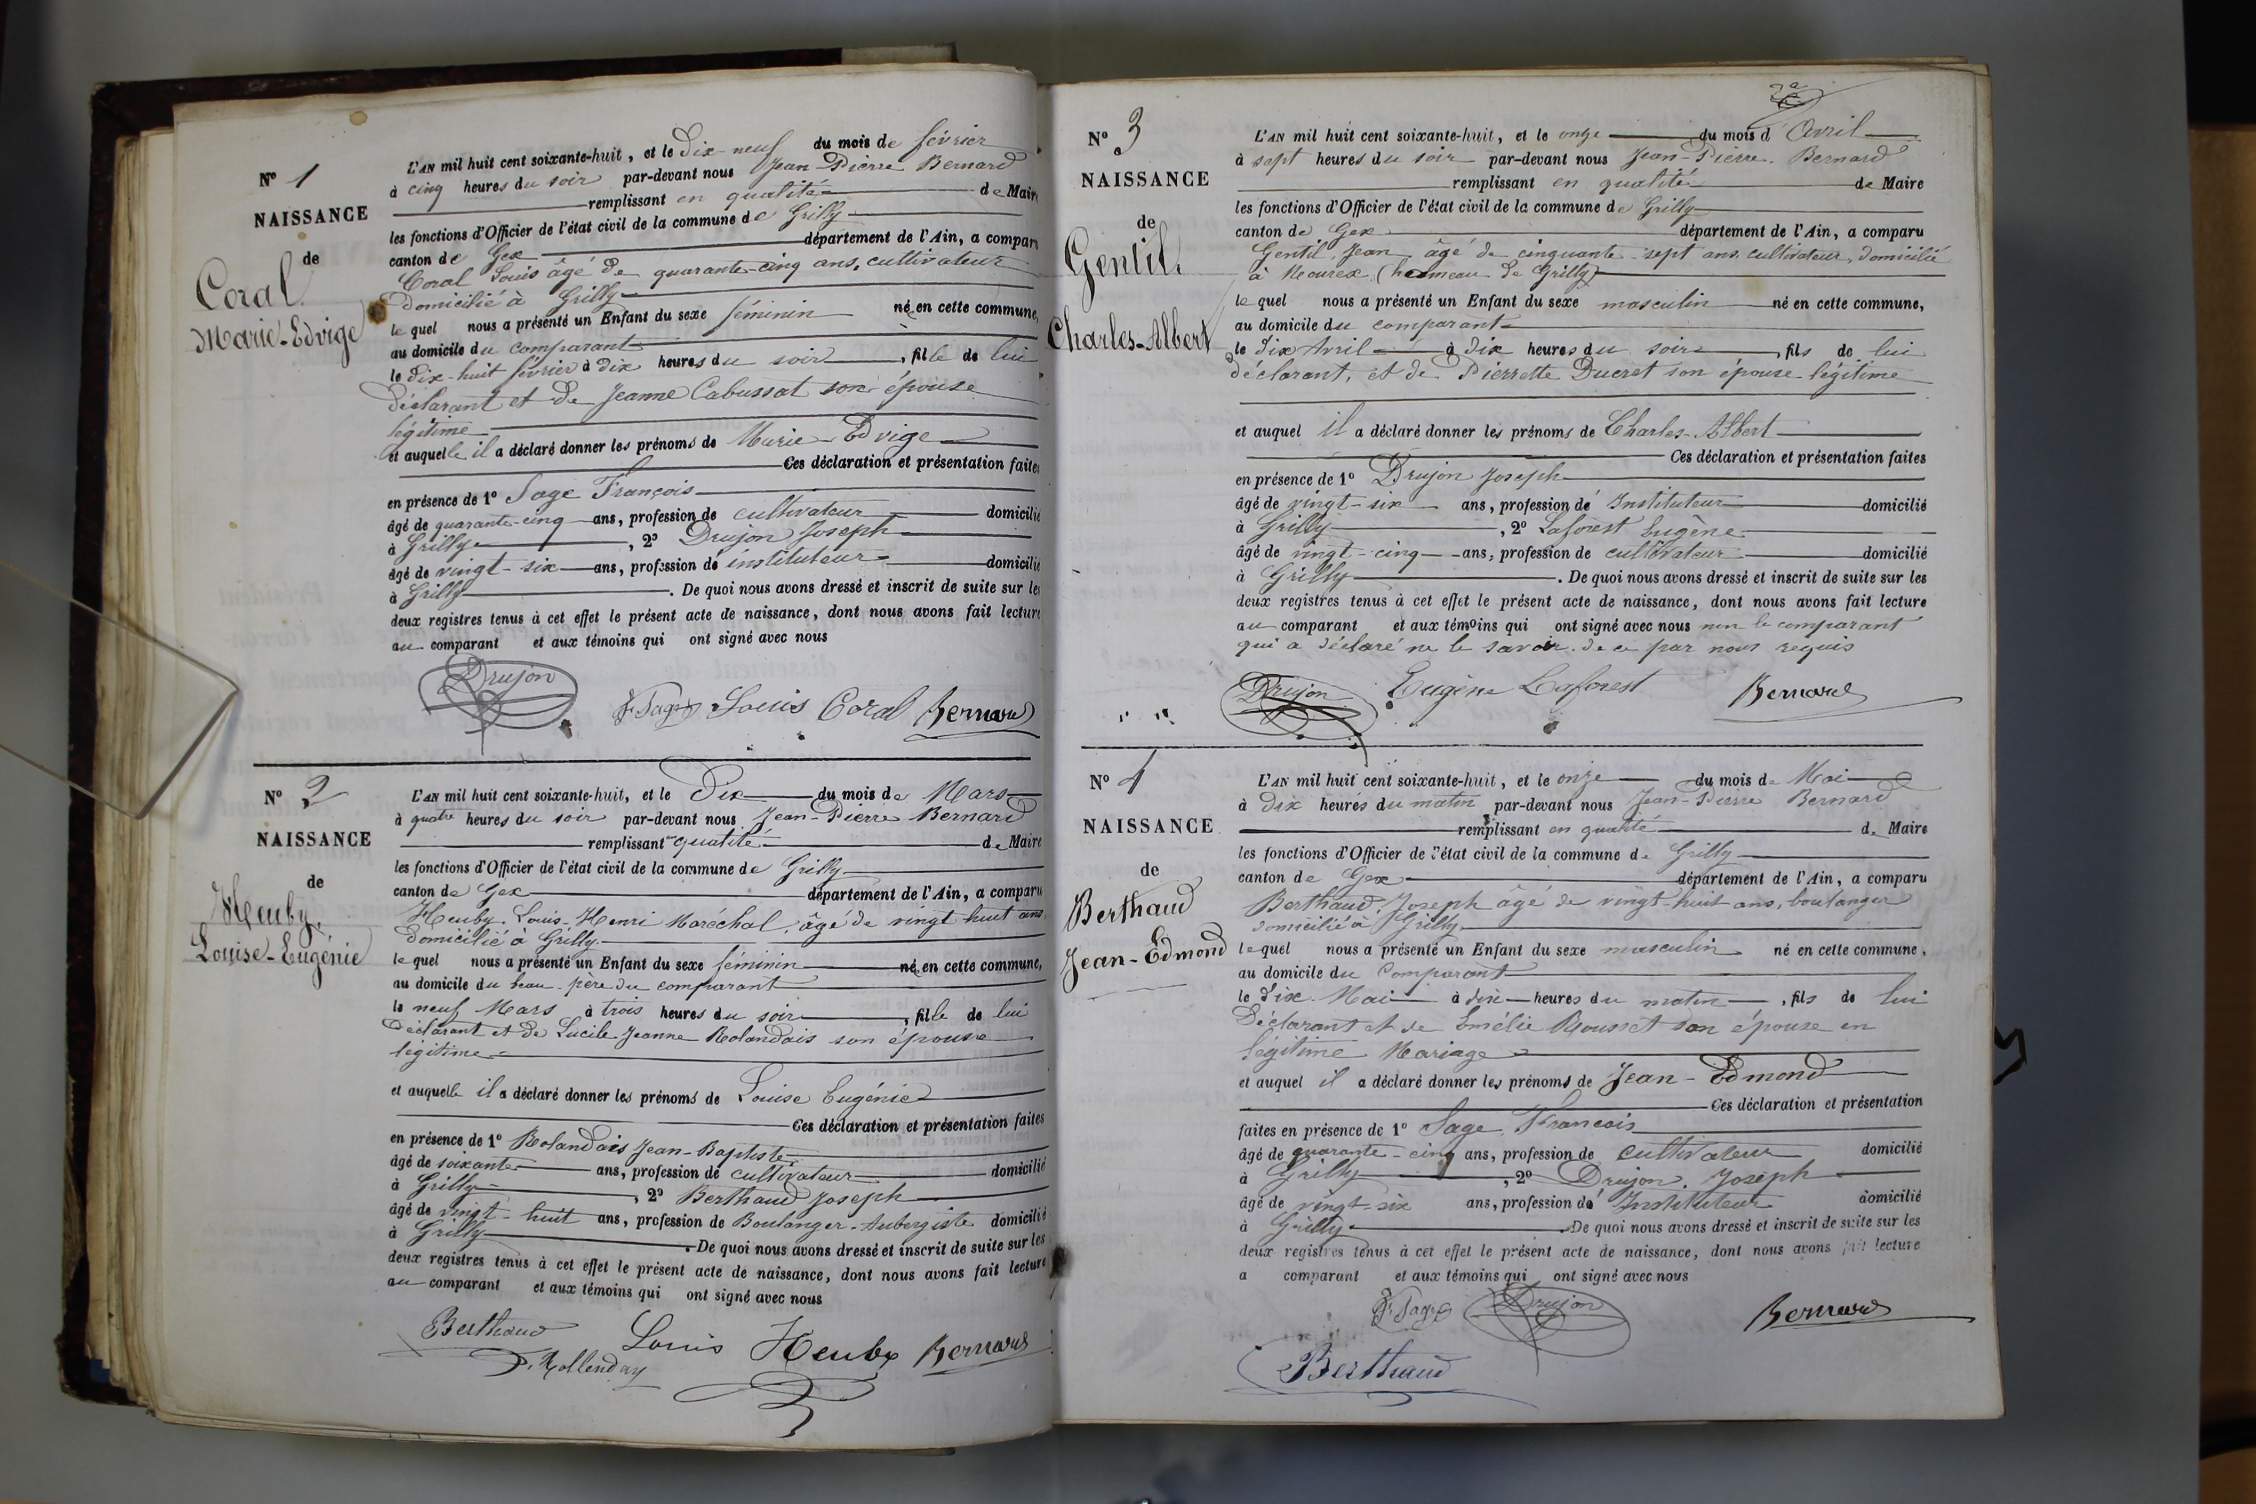 N° 1
NAISSANCE
de
Coral
Marie-Edvige
L'AN mil huit cent soixante-huit, et le dix-neuf du mois de février
à cinq heures du soir par-devant nous Jean-Pierre Bernard
remplissant en qualité de Maire
les fonctions d'Officier de l'état civil de la commune de Grilly
canton de Gex département de l'Ain, a comparu
Coral Louis âgé de quarante-cinq ans, cultivateur
domicilié à Grilly
le quel nous a présenté un Enfant du sexe féminin né en cette commune,
au domicile du comparant
le dix-huit février à dix heures du soir, fille de lui
déclarant et de Jeanne Cabussat son épouse
légitime
et auquelle il a déclaré donner les prénoms de Marie-Edvige
Ces déclaration et présentation faites
en présence de 1° Sage François
âgé de quarante-cinq ans, profession de cultivateur domicilié
à Grilly, 2° Drujon Joseph
âgé de vingt-six ans, profession de instituteur domicilié
à Grilly. De quoi nous avons dressé et inscrit de suite sur les
deux registres tenus à cet effet le présent acte de naissance, dont nous avons fait lecture
au comparant et aux témoins qui ont signé avec nous
Drujon F. Sage Louis Coral Bernard
N° 2
NAISSANCE
de
Heuby,
Louise-Eugénie
L'AN mil huit cent soixante-huit, et le Dix du mois de Mars
à quatre heures du soir par-devant nous Jean-Pierre Bernard
remplissant en qualité de Maire
les fonctions d'Officier de l'état civil de la commune de Grilly
canton de Gex département de l'Ain, a comparu
Heuby Louis-Henri Maréchal, âgé de vingt huit ans
domicilié à Grilly
le quel nous a présenté un Enfant du sexe féminin né en cette commune,
au domicile du beau-père du comparant
le neuf Mars à trois heures du soir, fille de lui
déclarant et de Lucile Jeanne Rolandais son épouse
légitime
et auquelle il a déclaré donner les prénoms de Louise Eugénie
Ces déclaration et présentation faites
en présence de 1° Rolandais Jean-Baptiste
âgé de soixante ans, profession de cultivateur domicilié
à Grilly, 2° Berthaud Joseph
âgé de vingt-huit ans, profession de Boulanger-Aubergiste domicilié
à Grilly. De quoi nous avons dressé et inscrit de suite sur les
deux registres tenus à cet effet le présent acte de naissance, dont nous avons fait lecture
au comparant et aux témoins qui ont signé avec nous
Berthaud Louis Heuby Bernard
Rollenday
N° 3
NAISSANCE
de
Gentil,
Charles-Albert
L'AN mil huit cent soixante-huit, et le onze du mois d'Avril
à sept heures du soir par-devant nous Jean-Pierre Bernard
remplissant en qualité de Maire
les fonctions d'Officier de l'état civil de la commune de Grilly
canton de Gex département de l'Ain, a comparu
Gentil Jean âgé de cinquante-sept ans cultivateur, domicilié
à Mourex (hameau de Grilly)
le quel nous a présenté un Enfant du sexe masculin né en cette commune,
au domicile du comparant
le dix Avril à dix heures du soir, fils de lui
déclarant, et de Pierrette Ducret son épouse légitime
et auquel il a déclaré donner les prénoms de Charles-Albert
Ces déclaration et présentation faites
en présence de 1° Drujon Joseph
âgé de vingt-six ans, profession de Instituteur domicilié
à Grilly, 2° Laforest Eugène
âgé de vingt-cinq ans, profession de cultivateur domicilié
à Grilly. De quoi nous avons dressé et inscrit de suite sur les
deux registres tenus à cet effet le présent acte de naissance, dont nous avons fait lecture
au comparant et aux témoins qui ont signé avec nous non le comparant
qui a déclaré ne le savoir de ce par nous requis
Drujon Eugène Laforest Bernard
N° 4
NAISSANCE
de
Berthaud
Jean-Edmond
L'AN mil huit cent soixante-huit, et le onze du mois de Mai
à dix heures du matin par-devant nous Jean-Pierre Bernard
remplissant en qualité de Maire
les fonctions d'Officier de l'état civil de la commune de Grilly
canton de Gex département de l'Ain, a comparu
Berthaud Joseph âgé de vingt-huit ans, boulanger
domicilié à Grilly
lequel nous a présenté un Enfant du sexe masculin né en cette commune,
au domicile du Comparant
le Dix Mai à dix heures du matin, fils de lui
Déclarant et de Emélie Rousset son épouse en
légitime Mariage
et auquel il a déclaré donner les prénoms de Jean-Edmond
Ces déclaration et présentation
faites en présence de 1° Sage François
âgé de quarante-cinq ans, profession de cultivateur domicilié
à Grilly, 2° Drujon Joseph
âgé de vingt-six ans, profession de Instituteur domicilié
à Grilly. De quoi nous avons dressé et inscrit de suite sur les
deux registres tenus à cet effet le présent acte de naissance, dont nous avons fait lecture
a comparant et aux témoins qui ont signé avec nous
F. Sage Drujon Bernard
Berthaud